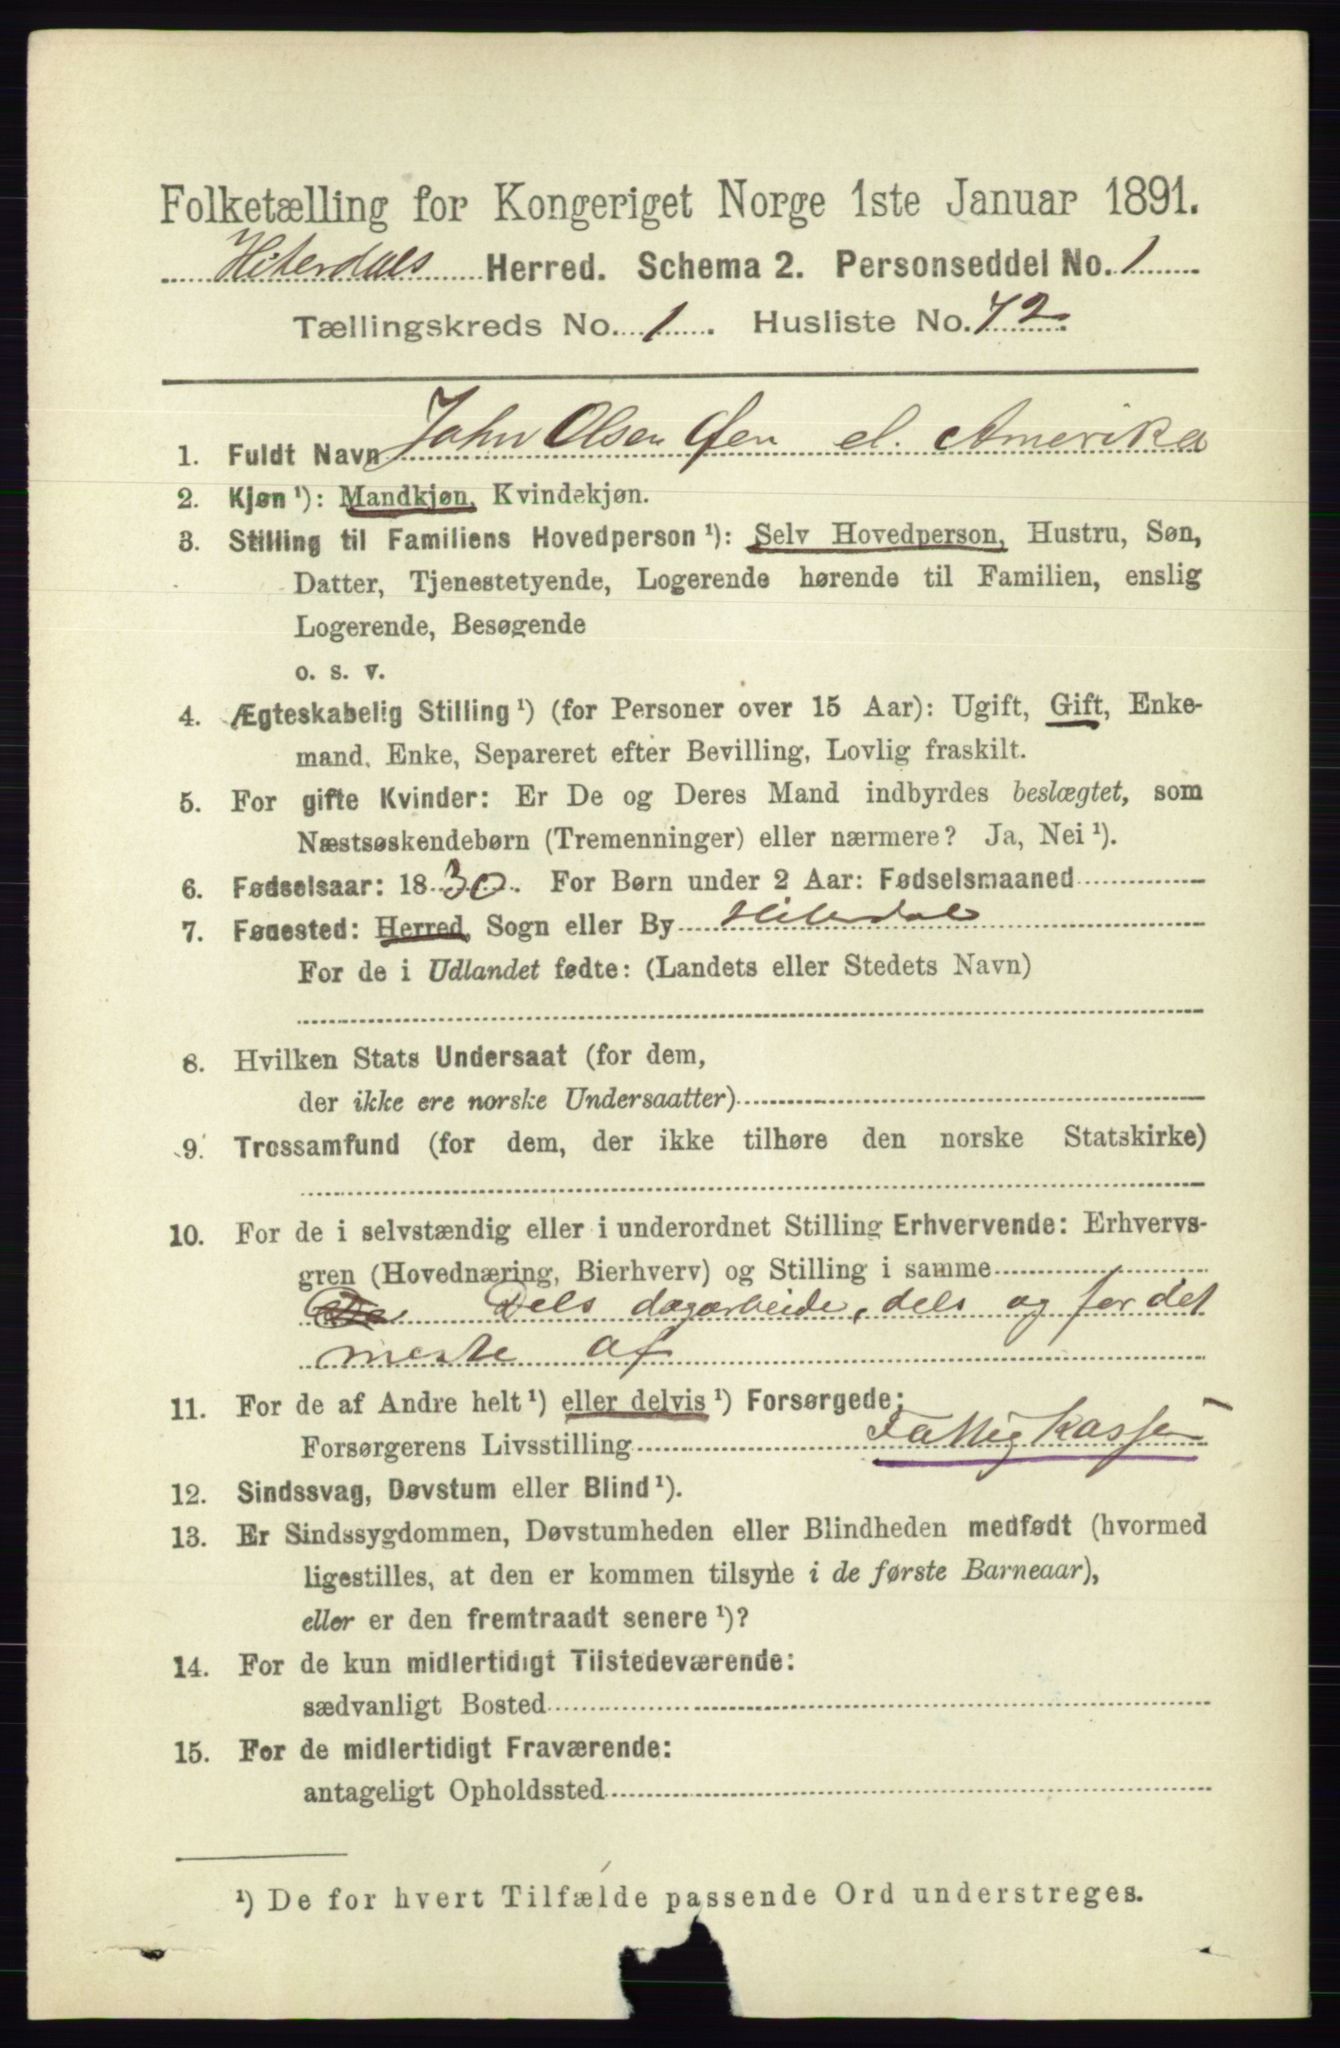 Folketælling for Kongeriget Norge 1ste Januar 1891.
Hiterdals Herred. Schema 2. Personseddel No. 1
Tællingskreds No. 1. Husliste No. 72.
1. Fuldt Navn John Olsen Øen el. Amerika
2. Kjøn ¹): Mandkjøn, Kvindekjøn.
3. Stilling til Familiens Hovedperson ¹): Selv Hovedperson, Hustru, Søn,
Datter, Tjenestetyende, Logerende hørende til Familien, enslig
Logerende, Besøgende
o. s. v.
4. Ægteskabelig Stilling ¹) (for Personer over 15 Aar): Ugift, Gift, Enke-
mand, Enke, Separeret efter Bevilling, Lovlig fraskilt.
5. For gifte Kvinder: Er De og Deres Mand indbyrdes beslægtet, som
Næstsøskendebørn (Tremenninger) eller nærmere? Ja, Nei ¹).
6. Fødselsaar: 1830. For Børn under 2 Aar: Fødselsmaaned
7. Fødested: Herred, Sogn eller By Hiterdal
For de i Udlandet fødte: (Landets eller Stedets Navn)
8. Hvilken Stats Undersaat (for dem,
der ikke ere norske Undersaatter)
9. Trossamfund (for dem, der ikke tilhøre den norske Statskirke)
10. For de i selvstændig eller i underordnet Stilling Erhvervende: Erhvervs-
gren (Hovednæring, Bierhverv) og Stilling i samme
Dels dagarbeide, dels og for det
meste af
11. For de af Andre helt ¹) eller delvis ¹) Forsørgede:
Forsørgerens Livsstilling Fattigkassen
12. Sindssvag, Døvstum eller Blind ¹).
13. Er Sindssygdommen, Døvstumheden eller Blindheden medfødt (hvormed
ligestilles, at den er kommen tilsyne i de første Barneaar),
eller er den fremtraadt senere ¹)?
14. For de kun midlertidigt Tilstedeværende:
sædvanligt Bosted
15. For de midlertidigt Fraværende:
antageligt Opholdssted
¹) De for hvert Tilfælde passende Ord understreges.